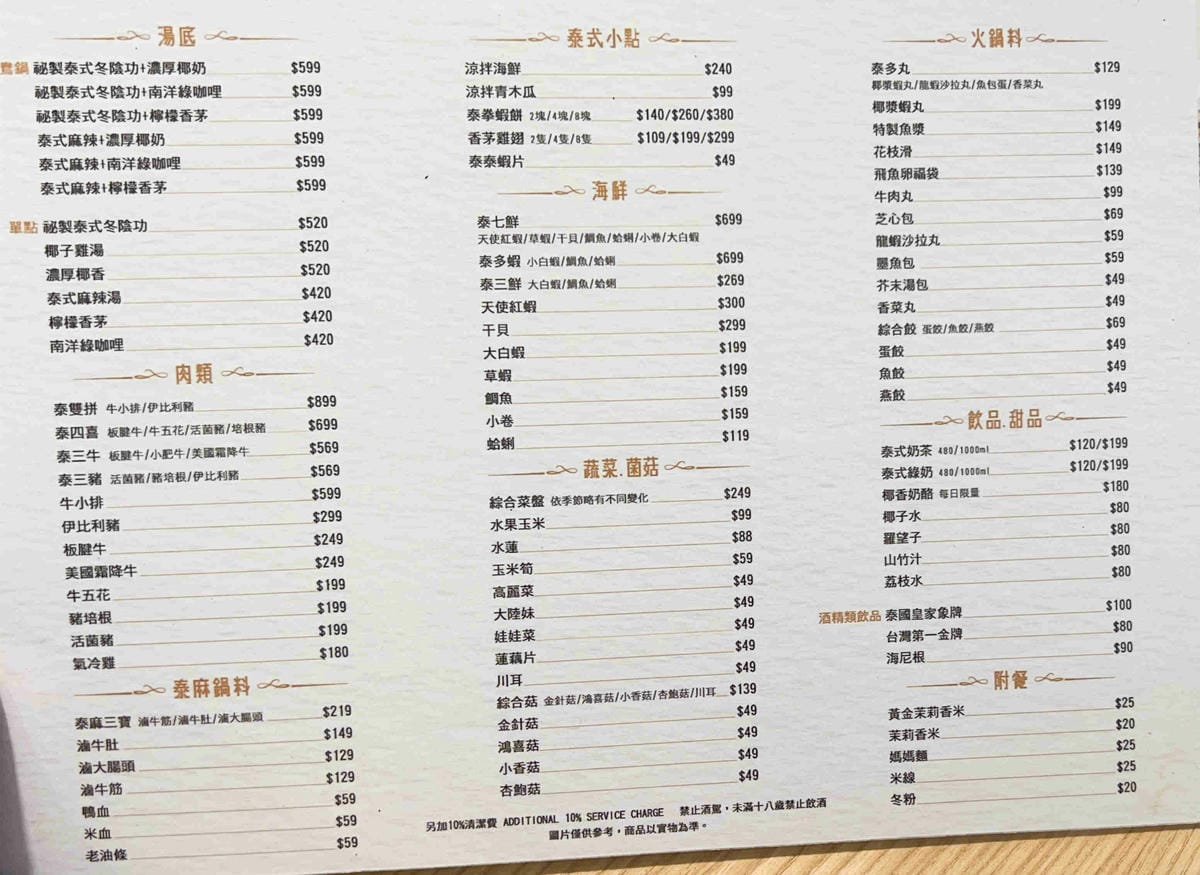 湯底
鴛鍋 祕製泰式冬陰功+濃厚椰奶 $599
祕製泰式冬陰功+南洋綠咖哩 $599
祕製泰式冬陰功+檸檬香茅 $599
泰式麻辣+濃厚椰奶 $599
泰式麻辣+南洋綠咖哩 $599
泰式麻辣+檸檬香茅 $599
單點 祕製泰式冬陰功 $520
椰子雞湯 $520
濃厚椰香 $520
泰式麻辣湯 $420
檸檬香茅 $420
南洋綠咖哩 $420
肉類
泰雙拼 牛小排/伊比利豬 $899
泰四喜 板腱牛/牛五花/活菌豬/培根豬 $699
泰三牛 板腱牛/小肥牛/美國霜降牛 $569
泰三豬 活菌豬/豬培根/伊比利豬 $569
牛小排 $599
伊比利豬 $299
板腱牛 $249
美國霜降牛 $249
牛五花 $199
豬培根 $199
活菌豬 $199
氣冷雞 $180
泰麻鍋料
泰麻三寶 滷牛筋/滷牛肚/滷大腸頭 $219
滷牛肚 $149
滷大腸頭 $129
滷牛筋 $129
鴨血 $59
米血 $59
老油條 $59
泰式小點
涼拌海鮮 $240
涼拌青木瓜 $99
泰拳蝦餅 2塊/4塊/8塊 $140/$260/$380
香茅雞翅 2隻/4隻/6隻 $109/$199/$299
泰泰蝦片 $49
海鮮
泰七鮮 $699
天使紅蝦/草蝦/干貝/鯛魚/蛤蜊/小卷/大白蝦
泰多蝦 小白蝦/鯛魚/蛤蜊 $699
泰三鮮 大白蝦/鯛魚/蛤蜊 $269
天使紅蝦 $300
干貝 $299
大白蝦 $199
草蝦 $199
鯛魚 $159
小卷 $159
蛤蜊 $119
蔬菜.菌菇
綜合菜盤 依季節略有不同變化 $249
水果玉米 $99
水蓮 $88
玉米筍 $59
高麗菜 $49
大陸妹 $49
娃娃菜 $49
蓮藕片 $49
川耳 $49
綜合菇 金針菇/鴻喜菇/小香菇/杏鮑菇/川耳 $139
金針菇 $49
鴻喜菇 $49
小香菇 $49
杏鮑菇 $49
火鍋料
泰多丸 $129
椰漿蝦丸/龍蝦沙拉丸/魚包蛋/香菜丸
椰漿蝦丸 $199
特製魚漿 $149
花枝滑 $149
飛魚卵福袋 $139
牛肉丸 $99
芝心包 $69
龍蝦沙拉丸 $59
墨魚包 $59
芥末湯包 $49
香菜丸 $49
綜合餃 蛋餃/魚餃/燕餃 $69
蛋餃 $49
魚餃 $49
燕餃 $49
飲品.甜品
泰式奶茶 480/1000ml $120/$199
泰式綠奶 480/1000ml $120/$199
椰香奶酪 每日限量 $180
椰子水 $80
羅望子 $80
山竹汁 $80
荔枝水 $80
酒精類飲品 泰國皇家象牌 $100
台灣第一金牌 $80
海尼根 $90
附餐
黃金茉莉香米 $25
茉莉香米 $20
媽媽麵 $25
米線 $25
冬粉 $20
另加10%清潔費 ADDITIONAL 10% SERVICE CHARGE 禁止酒駕,未滿十八歲禁止飲酒
圖片僅供參考,商品以實物為準。